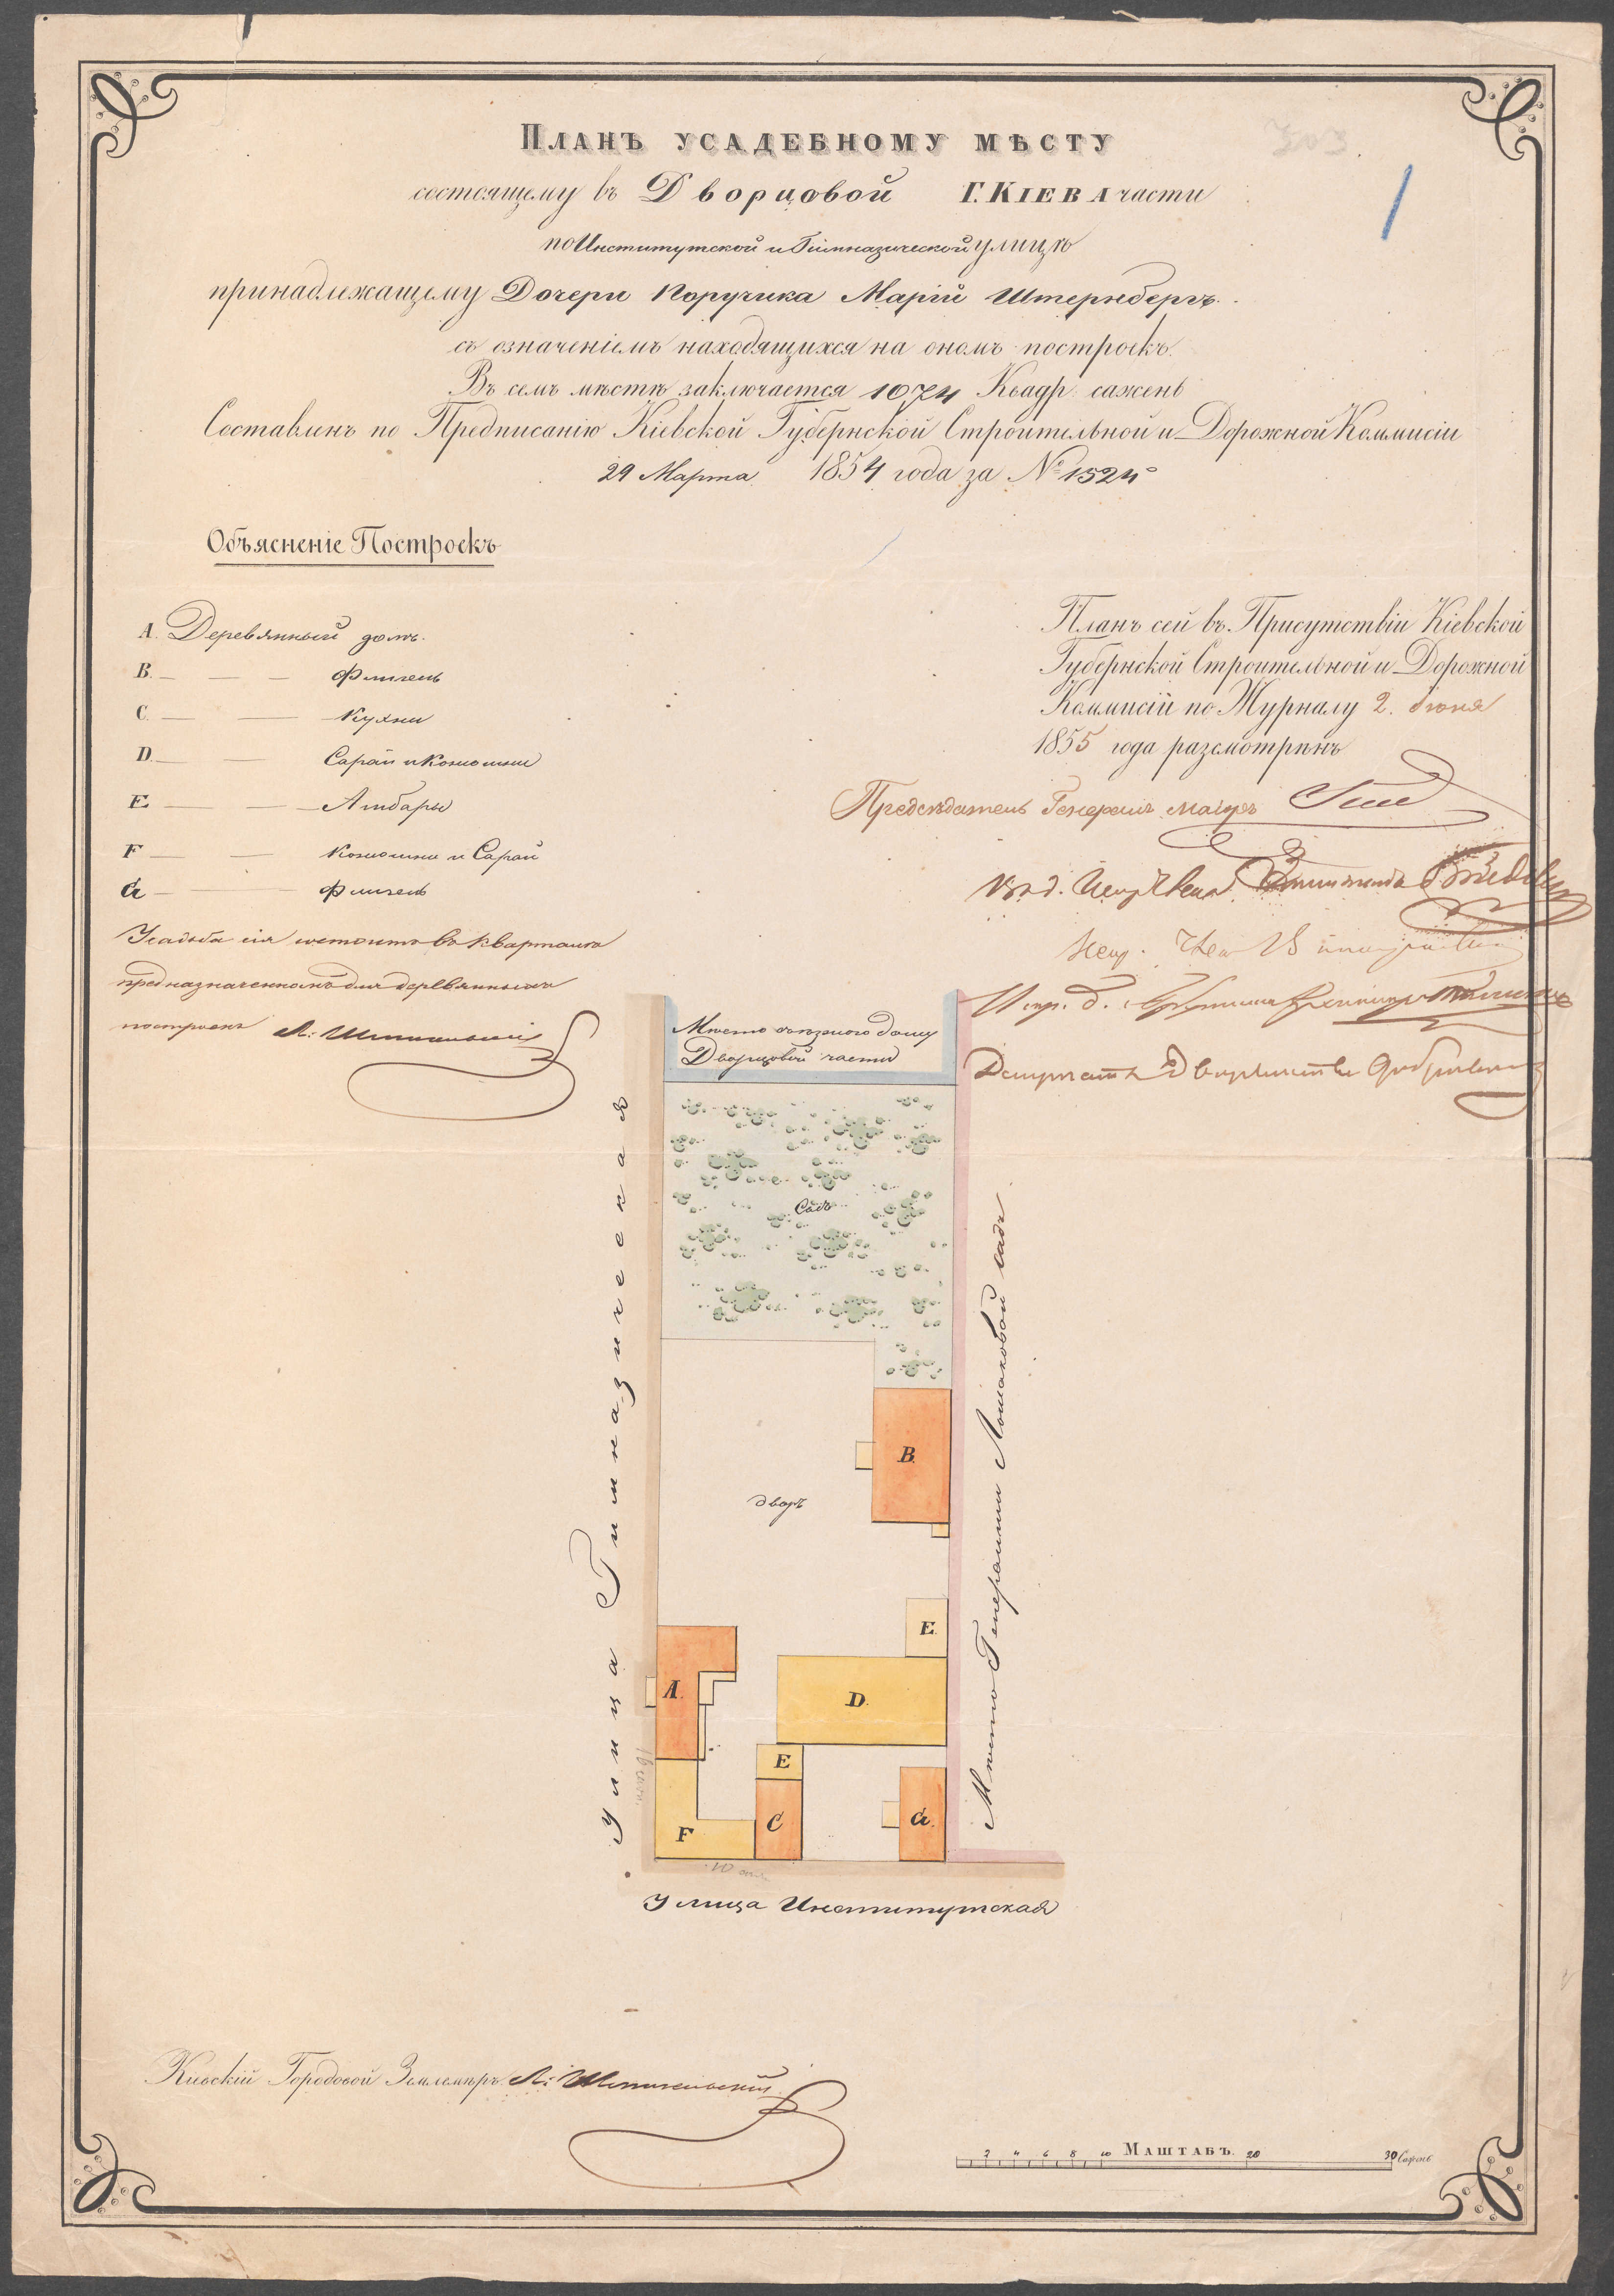 Планъ усадебному мѣсту
состоящему въ Дворцовой Г. Кіева части
по Институтской и Гимназической улицѣ
принадлежащему Дочери Поручика Маріи Штернбергъ.
съ означеніемъ находящихся на ономъ построекъ.
Въ семъ мѣстѣ заключается 1074 Квадр: сажень
Составленъ по Предписанію Кіевской Губернской Строительной и Дорожной Коммисіи
29 Марта 1854 года за № 1524
303
1
Объясненіе Построекъ
A. Деревянный домъ.
B. — — — Флигель
C. — — Кухни
D. — — Сараи и Конюшни
E — — Амбары
F — — Конюшни и Сараи
G — — Флигель
Усадьба сія состоитъ въ кварталѣ
предназначенномъ для деревянныхъ
построекъ
Планъ сей въ Присутствіи Кіевской
Губернской Строительной и Дорожной
Коммисіи по Журналу 2. Іюня
1855 года разсмотрѣнъ
Предсѣдатель Генералъ Маіоръ
Депутатъ Дворянства
Мѣсто съѣзжого дому
Дворцовой части
Садъ
Улица Гимназическая
Мѣсто Генеральши Лошаковой садъ
B.
дворъ
E.
A.
D.
E
F
C
G.
10 саж.
Улица Институтская
Кіевскій Городовой Землемѣръ
2 4 6 8 10 Маштабъ. 20 30 Сажень